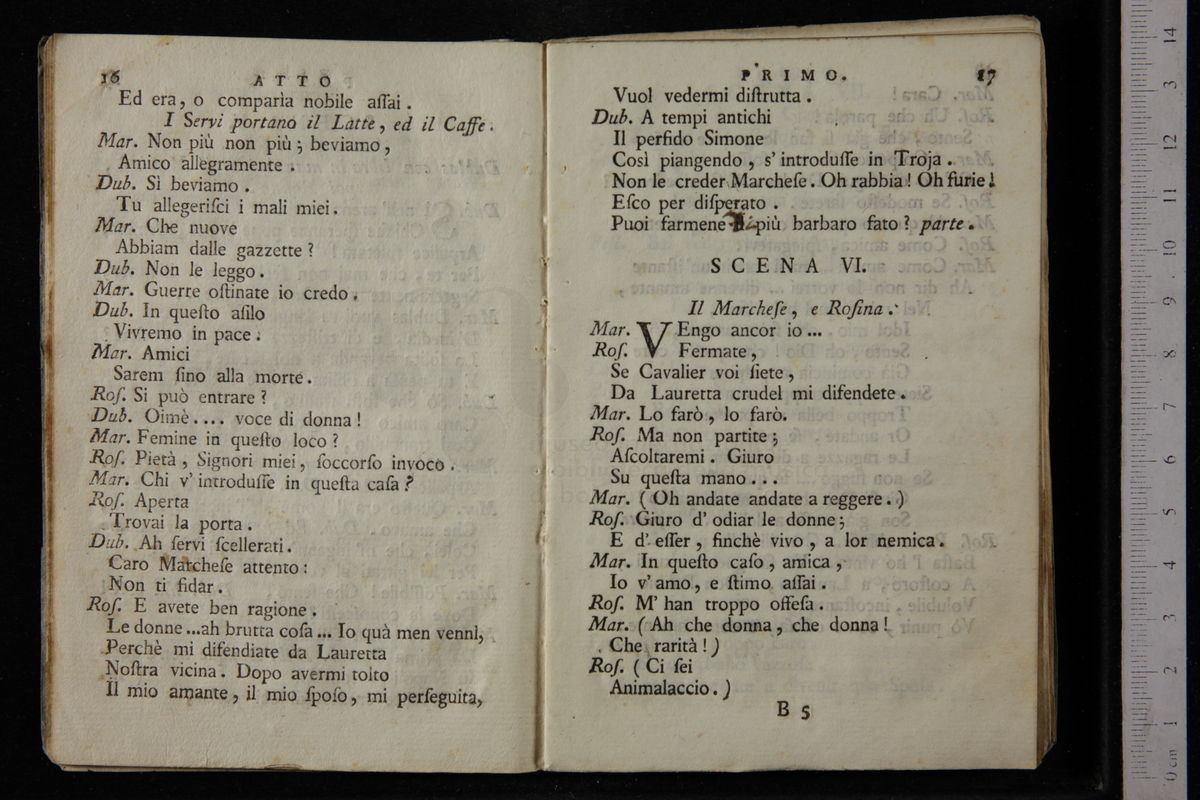 16 ATTO
Ed era, o comparìa nobile aſſai.
I Servi portano il Latte, ed il Caffe.
Mar. Non più non più; beviamo,
Amico allegramente.
Dub. Sì beviamo.
Tu allegeriſci i mali miei.
Mar. Che nuove
Abbiam dalle gazzette?
Dub. Non le leggo.
Mar. Guerre oſtinate io credo.
Dub. In queſto aſilo
Vivremo in pace.
Mar. Amici
Sarem ſino alla morte.
Roſ. Si può entrare?
Dub. Oimè.... voce di donna!
Mar. Femine in queſto loco?
Roſ. Pietà, Signori miei, ſoccorſo invoco.
Mar. Chi v' introduſſe in queſta caſa?
Roſ. Aperta
Trovai la porta.
Dub. Ah ſervi ſcellerati.
Caro Marcheſe attento:
Non ti fidar.
Roſ. E avete ben ragione.
Le donne...ah brutta coſa... Io quà men venni,
Perchè mi difendiate da Lauretta
Noſtra vicina. Dopo avermi tolto
Il mio amante, il mio ſpoſo, mi perſeguita,
PRIMO. 17
Vuol vedermi diſtrutta.
Dub. A tempi antichi
Il perfido Simone
Così piangendo, s' introduſſe in Troja.
Non le creder Marcheſe. Oh rabbia! Oh furie!
Eſco per diſperato.
Puoi farmene più barbaro fato? parte.
SCENA VI.
Il Marcheſe, e Roſina.
Mar. VEngo ancor io...
Roſ. Fermate,
Se Cavalier voi ſiete,
Da Lauretta crudel mi difendete.
Mar. Lo farò, lo farò.
Roſ. Ma non partite;
Aſcoltaremi. Giuro
Su queſta mano...
Mar. (Oh andate andate a reggere.)
Roſ. Giuro d' odiar le donne;
E d' eſſer, finchè vivo, a lor nemica.
Mar. In queſto caſo, amica,
Io v' amo, e ſtimo aſſai.
Roſ. M' han troppo offeſa.
Mar. (Ah che donna, che donna!
Che rarità!)
Roſ. (Ci ſei
Animalaccio.)
B 5
14
13
12
11
10
9
8
7
6
5
4
3
2
1
0 cm